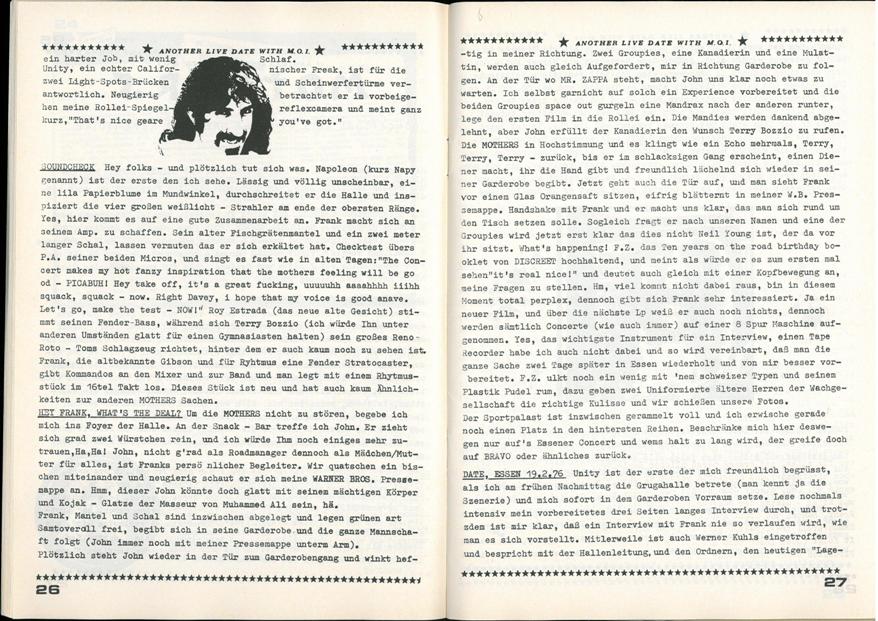 ANOTHER LIVE DATE WITH M.O.I.
ein harter Job, mit wenig Schlaf.
Unity, ein echter Califor- nischer Freak, ist für die
zwei Light-Spots-Brücken und Scheinwerfertürme ver-
antwortlich. Neugierig betrachtet er im vorbeige-
hen meine Rollei-Spiegel- reflexcamera und meint ganz
kurz,"That's nice geare you've got."
SOUNDCHECK Hey folks - und plötzlich tut sich was. Napoleon (kurz Napy
genannt) ist der erste den ich sehe. Lässig und völlig unscheinbar, ei-
ne lila Papierblume im Mundwinkel, durchschreitet er die Halle und ins-
piziert die vier großen weißlicht - Strahler am ende der obersten Ränge.
Yes, hier kommt es auf eine gute Zusammenarbeit an. Frank macht sich an
seinem Amp. zu schaffen. Sein alter Fischgrätenmantel und ein zwei meter
langer Schal, lassen vermuten das er sich erkältet hat. Checktest übers
P.A. seiner beiden Micros, und singt es fast wie in alten Tagen:"The Con-
cert makes my hot fanzy inspiration that the mothers feeling will be go
od - PICABUH! Hey take off, it's a great fucking, uuuuuhh aaaahhhh iiihh
squack, squack - now. Right Davey, i hope that my voice is good anave.
Let's go, make the test - NOW!" Roy Estrada (das neue alte Gesicht) sti-
mmt seinen Fender-Bass, während sich Terry Bozzio (ich würde Ihn unter
anderen Umständen glatt für einen Gymnasiasten halten) sein großes Reno-
Roto - Toms Schlagseug richtet, hinter dem er auch kaum noch zu sehen ist.
Frank, die altbekannte Gibson und für Ryhtmus eine Fender Stratocaster,
gibt Kommandos an den Mixer und zur Band und man legt mit einem Rhytmus-
stück im 16tel Takt los. Dieses Stück ist neu und hat auch kaum Ähnlich-
keiten zur anderen MOTHERS Sachen.
HEY FRANK, WHAT'S THE DEAL? Um die MOTHERS nicht zu stören, begebe ich
mich ins Foyer der Halle. An der Snack - Bar treffe ich John. Er zieht
sich grad zwei Würstchen rein, und ich würde Ihm noch einiges mehr zu-
trauen,Ha,Ha! John, nicht g'rad als Roadmanager dennoch als Mädchen/Mut-
ter für alles, ist Franks persö nlicher Begleiter. Wir quatschen ein bis-
chen miteinander und neugierig schaut er sich meine WARNER BROS. Presse-
mappe an. Hmm, dieser John könnte doch glatt mit seinem mächtigen Körper
und Kojak - Glatze der Masseur von Muhammed Ali sein, hä.
Frank, Mantel und Schal sind inzwischen abgelegt und legen grünen art
Samtoverall frei, begibt sich in seine Garderobe und die ganze Mannscha-
ft folgt (John immer noch mit meiner Pressemappe unterm Arm).
Plötzlich steht John wieder in der Tür zum Garderobengang und winkt hef-
26
ANOTHER LIVE DATE WITH M.O.I.
-tig in meiner Richtung. Zwei Groupies, eine Kanadierin und eine Mulat-
tin, werden auch gleich Aufgefordert, mir in Richtung Garderobe zu fol-
gen. An der Tür wo MR. ZAPPA steht, macht John uns klar noch etwas zu
warten. Ich selbst garnicht auf solch ein Experience vorbereitet und die
beiden Groupies space out gurgeln eine Mandrax nach der anderen runter,
lege den ersten Film in die Rollei ein. Die Mandies werden dankend abge-
lehnt, aber John erfüllt der Kanadierin den Wunsch Terry Bozzio zu rufen.
Die MOTHERS in Hochstimmung und es klingt wie ein Echo mehrmals, Terry,
Terry, Terry - zurück, bis er im schlacksigen Gang erscheint, einen Die-
ner macht, ihr die Hand gibt und freundlich lächelnd sich wieder in sei-
ner Garderobe begibt. Jetzt geht auch die Tür auf, und man sieht Frank
vor einem Glas Orangensaft sitzen, eifrig blätternt in meiner W.B. Pres-
semappe. Handshake mit Frank und er macht uns klar, das man sich rund um
den Tisch setzen solle. Sogleich fragt er nach unseren Namen und eine der
Groupies wird jetzt erst klar das dies nicht Neil Young ist, der da vor
ihr sitzt. What's happening! F.Z. das Ten years on the road birthday bo-
oklet von DISCREET hochhaltend, und meint als würde er es zum ersten mal
sehen"it's real nice!" und deutet auch gleich mit einer Kopfbewegung an,
meine Fragen zu stellen. Hm, viel kommt nicht dabei raus, bin in diesem
Moment total perplex, dennoch gibt sich Frank sehr interessiert. Ja ein
neuer Film, und über die nächste Lp weiß er auch noch nichts, dennoch
werden sämtlich Concerte (wie auch immer) auf einer 8 Spur Maschine auf-
genommen. Yes, das wichtigste Instrument für ein Interview, einen Tape
Recorder habe ich auch nicht dabei und so wird vereinbart, daß man die
ganze Sache zwei Tage später in Essen wiederholt und von mir besser vor-
bereitet. F.Z. ulkt noch ein wenig mit 'nem schweizer Typen und seinem
Plastik Pudel rum, dazu geben zwei Uniformierte ältere Herren der Wachge-
sellschaft die richtige Kulisse und wir schießen unsere Fotos.
Der Sportpalast ist inzwischen gerammelt voll und ich erwische gerade
noch einen Platz in den hintersten Reihen. Beschränke mich hier deswe-
gen nur auf's Essener Concert und wems halt zu lang wird, der greife doch
auf BRAVO oder ähnliches zurück.
DATE, ESSEN 19.2.76 Unity ist der erste der mich freundlich begrüsst,
als ich am frühen Nachmittag die Grugahalle betrete (man kennt ja die
Szenerie) und mich sofort in dem Garderoben Vorraum setze. Lese nochmals
intensiv mein vorbereitetes drei Seiten langes Interview durch, und trot-
zdem ist mir klar, daß ein Interview mit Frank nie so verlaufen wird, wie
man es sich vorstellt. Mitlerweile ist auch Werner Kuhls eingetroffen
und bespricht mit der Hallenleitung, und den Ordnern, den heutigen "Lage-
27